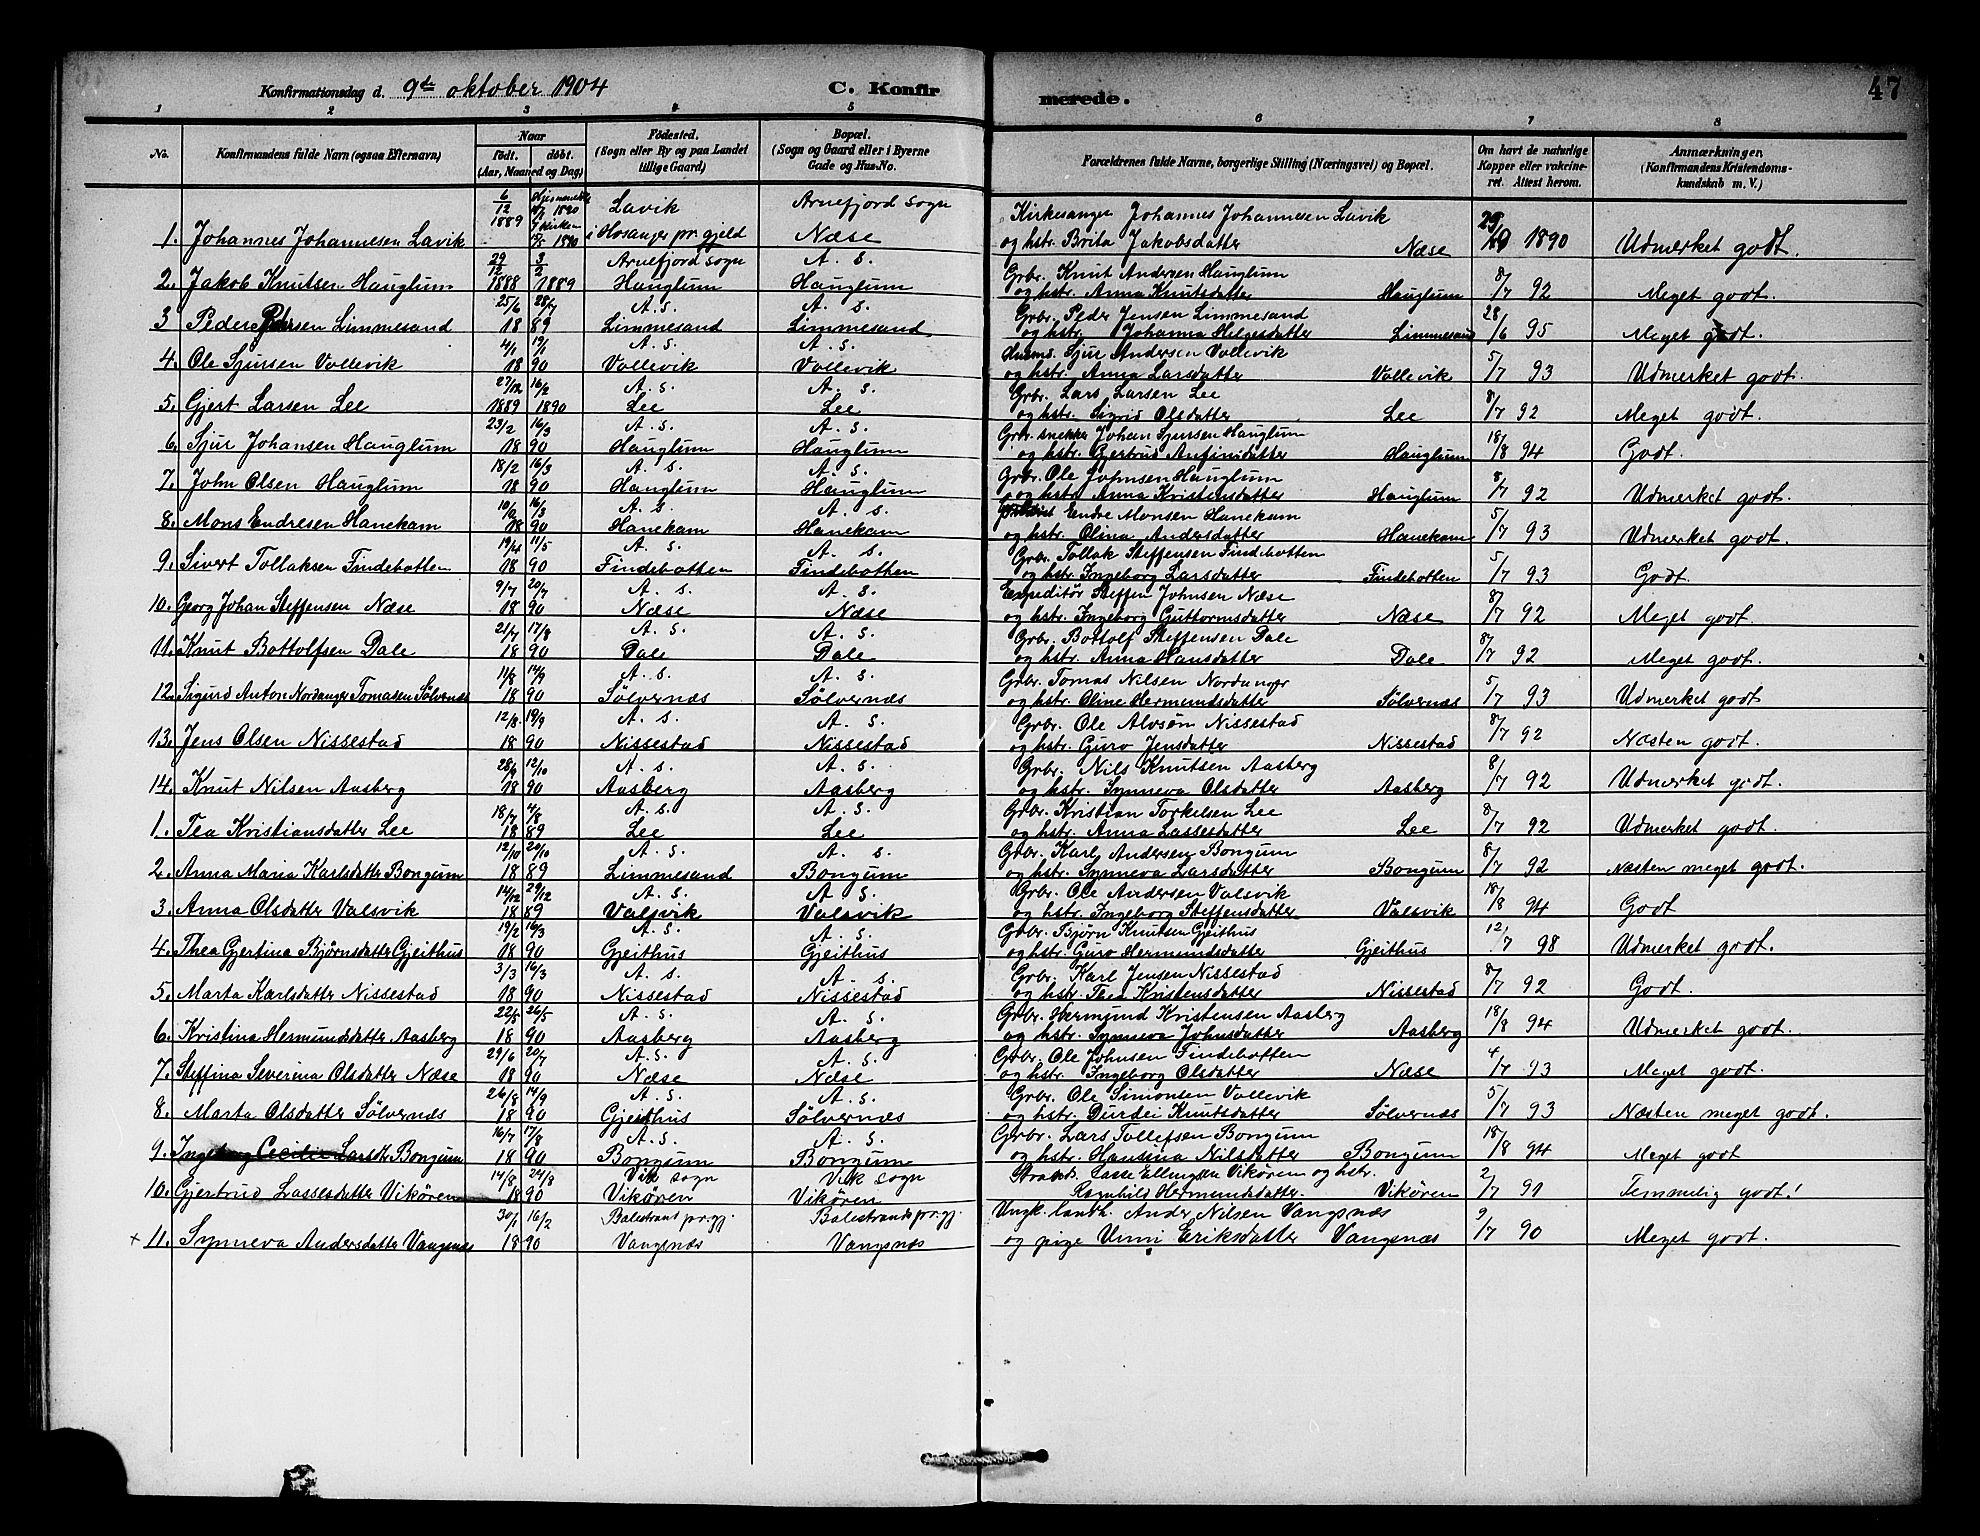 Konfirmationsdag d. 9de oktober 1904 C. Konfirmerede. 47
1 2 3 4 5 6 7 8
No. Konfirmandens fulde Navn (ogsaa Efternavn) Naar født. døbt. (Aar, Maaned og Dag) Fødested. (Sogn eller By og paa Landet tillige Gaard) Bopæl. (Sogn og Gaard eller i Byerne Gade og Hus-No. Forældrenes fulde Navne, borgerlige Stilling (Næringsvei) og Bopæl. Om havt de naturlige Kopper eller vakcineret. Attest herom. Anmærkninger. (Konfirmandens Kristendomskundskab m. V.)
6/12 1889 1890 Lavik Arnefjord sogn Kirkesanger Johannes Johannesen Lavik
1. Johannes Johannesen Lavik i kirken 1890 i Hosanger pr. gjeld Næse og hstr. Brita Jakobsdatter Næse 1890 Udmerket godt.
29/12 3/2 Arnefjord sogn A. S. Grbr. Knut Andersen Hauglum
2. Jakob Knutsen Hauglum 1888 1889 Hauglum Hauglum og hstr. Anna Knutsdatter Hauglum 8/7 92 Meget godt.
25/6 28/7 A. S. A. S. Grbr. Peder Jensen Limmesand
3 Peder Pedersen Limmesand 1889 Limmesand Limmesand og hstr. Johanna Helgesdatter Limmesand 28/6 95 Meget godt.
4/1 19/1 A. S. A. S. Husms. Sjur Andersen Vollevik
4. Ole Sjursen Vollevik 1890 Vollevik Vollevik og hstr. Anna Larsdatter Vollevik 5/7 93 Udmerket godt.
27/12 16/2 A. S. A. S. Grbr. Lars Larsen Lee
5. Gjert Larsen Lee 1889 1890 Lee Lee og hstr. Sigrid Olsdatter Lee 8/7 92 Meget godt.
23/2 16/3 A. S. A. S. Grbr. snekker Johan Sjursen Hauglum
6. Sjur Johansen Hauglum 1890 Hauglum Hauglum og hstr. Gjertrud Anfinsdatter Hauglum 18/8 94 Godt.
18/2 16/3 A. S. A. S. Grbr. Ole Johnsen Hauglum
7. John Olsen Hauglum 1890 Hauglum Hauglum og hstr. Anna Kristensdatter Hauglum 8/7 92 Udmerket godt.
10/2 16/3 A. S. A. S. Endre Monsen Hanekam
8. Mons Endresen Hanekam 1890 Hanekam Hanekam og hstr. Olina Andersdatter Hanekam 5/7 93 Udmerket godt.
19/4 11/5 A. S. A. S. Grbr. Tollak Steffensen Findebotten
9. Sivert Tollaksen Findebotten 1890 Findebotten Findebotten og hstr. Ingeborg Larsdatter Findebotten 5/7 93 Godt.
9/7 20/7 A. S. A. S. Expeditør Steffen Johnsen Næse
10. Georg Johan Steffensen Næse 1890 Næse Næse og hstr. Ingeborg Guttormsdatter Næse 8/7 92 Meget godt.
21/7 17/8 A. S. A. S. Grbr. Bottolf Steffensen Dale
11. Knut Bottolfsen Dale 1890 Dale Dale og hstr. Anna Hansdatter Dale 8/7 92 Meget godt.
11/8 14/9 A. S. A. S. Grbr. Tomas Nilsen Nordanger
12. Sigurd Anton Nordanger Tomasen Sølvernæs 1890 Sølvernæs Sølvernæs og hstr. Oline Hermundsdatter Sølvernæs 5/7 93 Udmerket godt
12/8 19/9 A. S. A. S. Grbr. Ole Alvsøn Nissestad
13. Jens Olsen Nissestad 1890 Nissestad Nissestad og hstr. Guro Jensdatter Nissestad 8/7 92 Næsten godt.
28/9 12/10 A. S. A. S. Grbr. Nils Knutsen Aasberg
14. Knut Nilsen Aasberg 1890 Aasberg Aasberg og hstr. Synneva Olsdatter Aasberg 8/7 92 Udmerket godt.
18/7 4/8 A. S. A. S. Grbr. Kristian Torkelsen Lee
1. Tea Kristiansdatter Lee 1889 Lee Lee og hstr. Anna Lassesdatter Lee 8/7 92 Udmerket godt.
12/10 20/10 A. S. A. S. Grbr. Karl Andersen Bongum
2. Anna Maria Karlsdatter Bongum 1889 Limmesand Bongum og hstr. Synneva Larsdatter Bongum 8/7 92 Næsten meget godt.
14/12 29/12 A. S. A. S. Grbr. Ole Andersen Valsvik
3. Anna Olsdatter Valsvik 1889 Valsvik Valsvik og hstr. Ingeborg Steffensdatter Valsvik 18/8 94 Godt
19/2 16/3 A. S. A. S. Grbr. Bjørn Knutsen Gjeithus
4. Thea Gjertina Bjørnsdatter Gjeithus 1890 Gjeithus Gjeithus og hstr. Guro Hermundsdatter Gjeithus 12/7 98 Udmerket godt.
3/3 16/3 A. S. A. S. Grbr. Karl Jensen Nissestad
5. Marta Karlsdatter Nissestad 1890 Nissestad Nissestad og hstr. Tea Kristensdatter Nissestad 8/7 92 Godt.
22/5 26/5 A. S. A. S. Grbr. Hermund Kristensen Aasberg
6. Kristina Hermundsdatter Aasberg 1890 Aasberg Aasberg og hstr. Synneva Johnsdatter Aasberg 18/8 94 Udmerket godt.
29/6 20/7 A. S. A. S. Grbr. Ole Johnsen Findebotten
7. Steffina Severina Olsdatter Næse 1890 Næse Næse og hstr. Ingeborg Olsdatter Næse 4/7 93 Meget godt.
26/8 14/9 A. S. A. S. Grbr. Ole Simonsen Vollevik
8. Marta Olsdatter Sølvernæs 1890 Gjeithus Sølvernæs og hstr. Durdei Knutsdatter Sølvernæs 5/7 93 Næsten meget godt.
16/7 17/8 A. S. A. S. Grbr. Lars Tollefsen Bongum
9. Ingeborg Cecilie Larsdtr Bongum 1890 Bongum Bongum og hstr. Hansina Nilsdatter Bongum 18/8 94 Meget godt
14/8 24/8 Vik sogn Vik sogn Strands. Lasse Ellingsen Vikøren og hstr.
10. Gjertrud Lassesdatter Vikøren 1890 Vikøren Vikøren Ragnhild Hermundsdatter. Vikøren 2/7 91 Temmelig godt!
30/1 16/2 Balestrand pr.gj. Balestrand pr.gj. Ungk. landh. Anders Nilsen Vangsnæs
× 11. Synneva Andersdatter Vangsnæs 1890 Vangsnæs Vangsnæs og pige Unni Eriksdatter Vangsnæs 9/7 90 Meget godt.